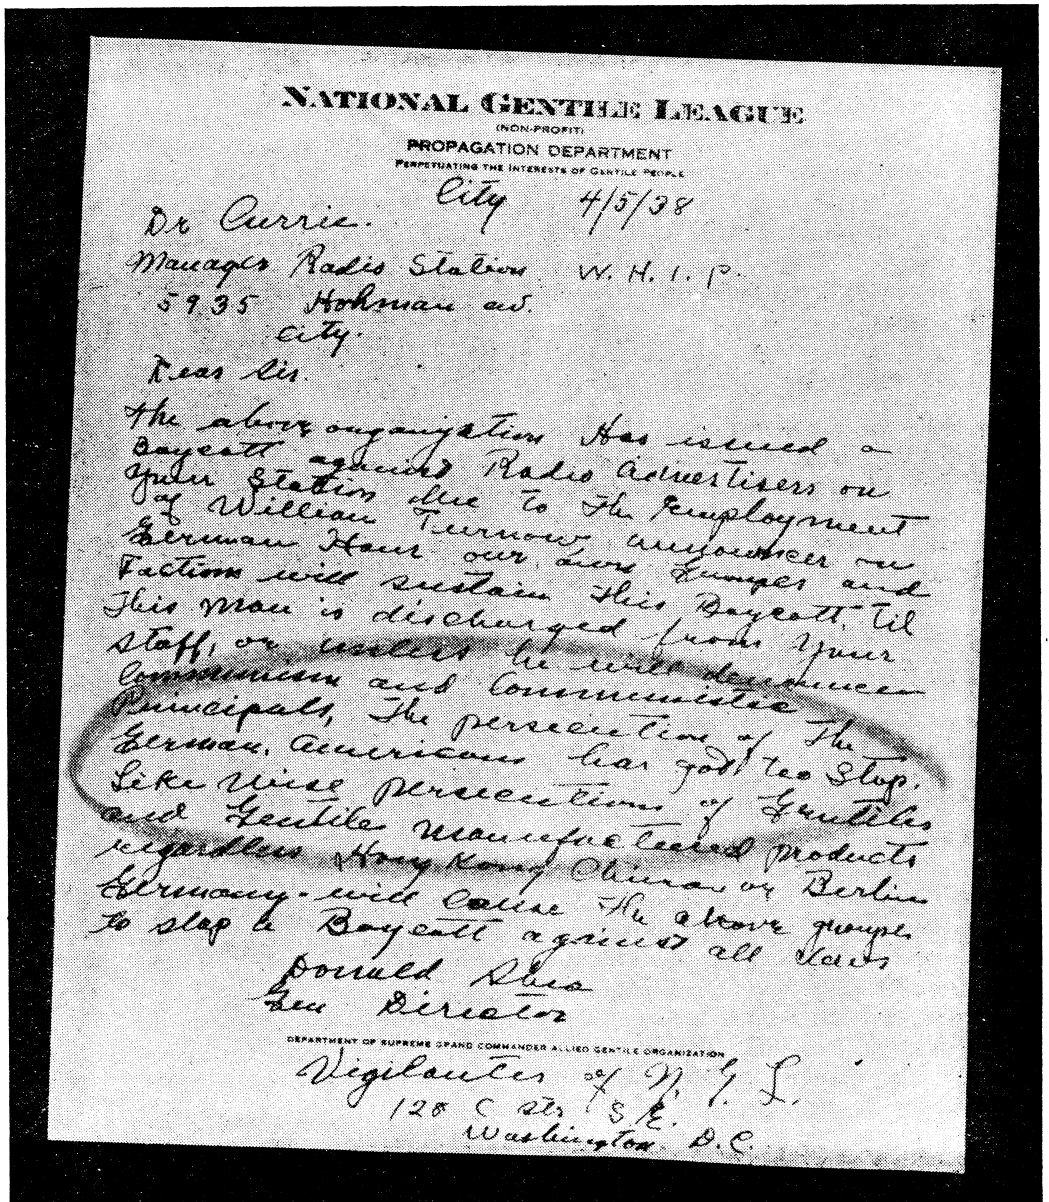 NATIONAL GENTILE LEAGUE
(NON-PROFIT)
PROPAGATION DEPARTMENT
PERPETUATING THE INTERESTS OF GENTILE PEOPLE
City 4/5/38
Dr Currie.
Manager Radio Station W. H. I. P.
5935 Hohman av.
City.
Dear Sir.
The above organization Has issued a
Boycott against Radio advertisers on
Your Station due to The Employment
of William Turnow announcer on
German Hour our own Groupes and
Factions will sustain This Boycott, Til
This man is discharged from your
staff, or unless he will denounce
Communism and Communistic
Principals, The persecution of The
German, Americans has got too Stop.
Like Wise persecutions of Gentiles
and Gentiles manufactured products
regardless Hong Kong China or Berlin
Germany - will cause The above groupes
to slap a Boycott against all
Donald Shea
Gen Director
DEPARTMENT OF SUPREME GRAND COMMANDER ALLIED GENTILE ORGANIZATION
Vigilantes of N. G. L.
128 C str S. E.
Washington D.C.